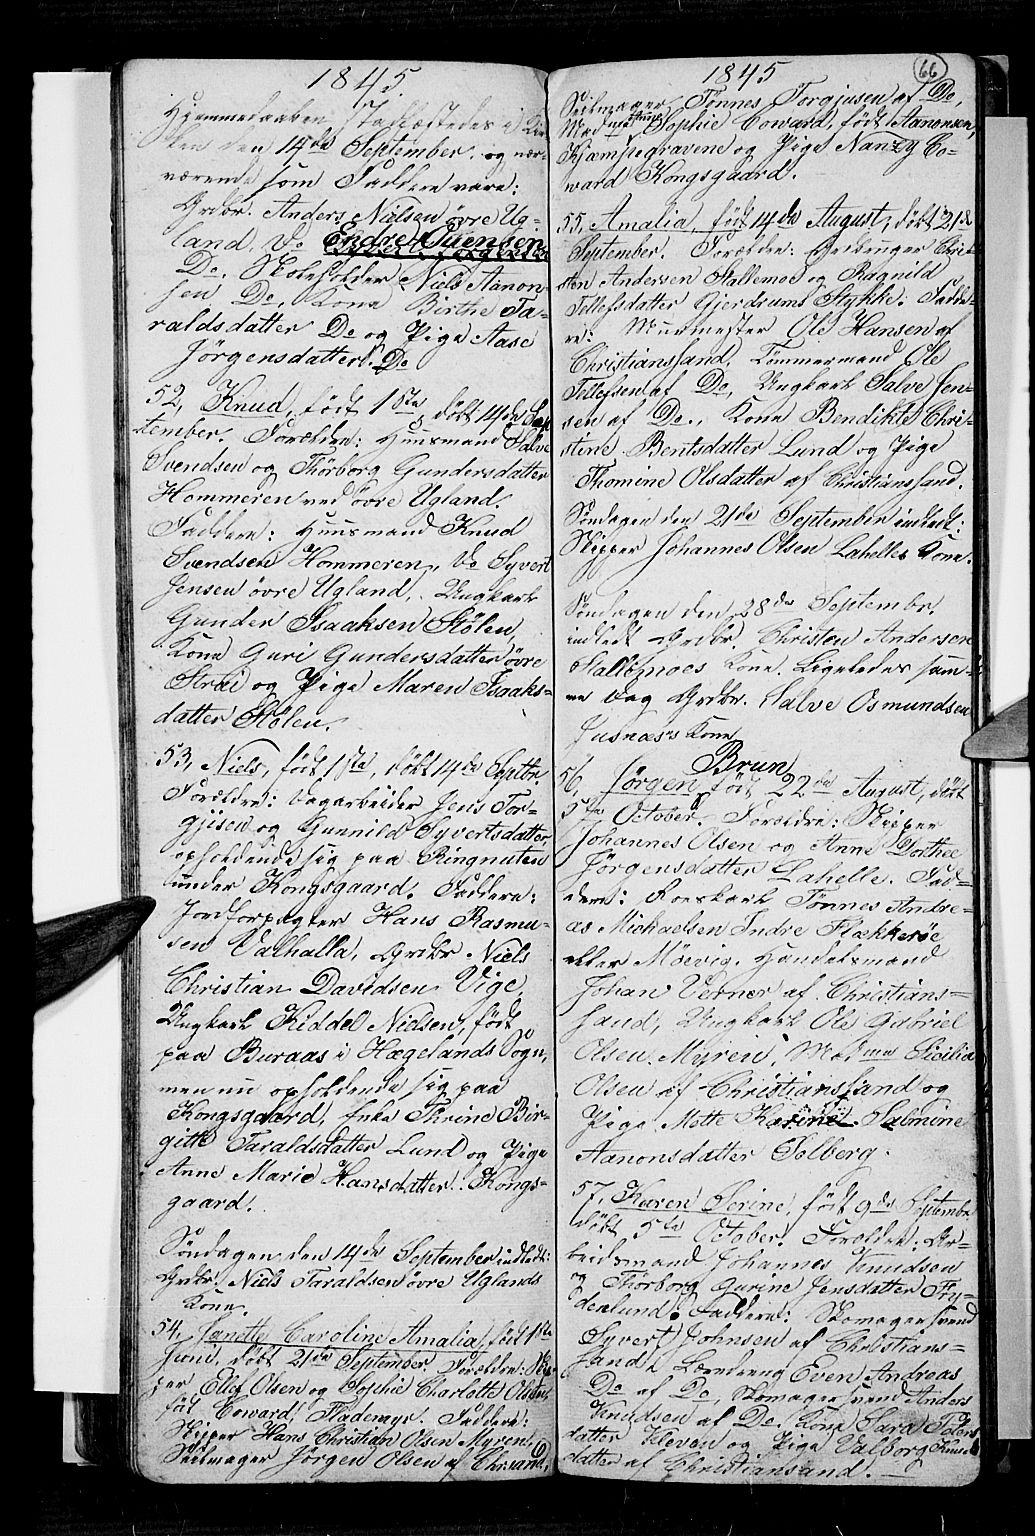 1845
Hjemmedaaben stadfæstedes i Kir-
ken den 14de September, og nær-
værende som Faddere vare:
Grdbr. Anders Nielsen øvre Ug-
land, Do Endre Svensen
Do, Skoleholder Niels Aanon-
sen Do, Kone Birthe Ta-
raldsdatter Do og Pige Aase
Jörgensdatter Do
52, Knud, født 1ste, døbt 14de Sep-
tember. Forældre: Huusmand Salve
Svendsen og Thorborg Gundersdatter
Hommeren ved øvre Ugland.
Faddere: Huusmand Knud
Svendsen Hommeren, Do Syvert
Jensen øvre Ugland, Ungkarl
Gunder Isaaksen Stølen,
Kone Guri Gundersdatter øvre
Straie og Pige Maren Isaaks-
datter Stølen.
53, Niels, født 1ste, døbt 14de Septbr.
Forældre: Dagarbeider Jens Tor-
gjisen og Gunnild Syvertsdatter
opholdende sig paa Ringnuten
under Kongsgaard. Faddere:
Jordforpagter Hans Rasmu-
sen Valhalla, Grdbr Niels
Christian Davidsen Vige,
Ungkarl Kiddel Nielsen, født
paa Buraas i Hægelands Sogn,
men nu opholdende sig paa
Kongsgaard, Enke Thrine Bir-
gitte Taraldsdatter Lund og Pige
Anne Marie Hansdatter Kongs-
gaard.
Søndagen den 14de September indledt:
Grdbr. Niels Taraldsen øvre Uglands
Kone.
54, Janette Caroline Amalia, født 1ste
Juni, døbt 21de September. Forældre: Skip-
per Ellef Olsen og Sophie Charlotte Olsen
født Coward, Fladermyr. Faddere:
Skipper Hans Christian Olsen Myren,
Seilmager Jörgen Olsen af Chrsand,
1845
66
Seilmager Tønnes Torgjusen af Do,
Madme Sophie Coward, født Aanonsen,
Kjæmpegravene og Pige Nanzy Co-
ward Kongsgaard.
55, Amalia, født 14de August, døbt 21de
September. Forældre: Grdbruger Chri-
sten Andersen Stallemoe og Ragnild
Tellefsdatter Gjerdsums Stykke. Fadde-
re: Muurmester Ole Hansen af
Christianssand, Tømmermand Ole
Tellefsen af Do, Ungkarl Salve Jen-
sen af Do, Kone Bendikte Chri-
stene Bentsdatter Lund og Pige
Thomine Olsdatter af Christianssand.
Søndagen den 21de September indledt:
Skipper Johannes Olsen Lahelles Kone.
Søndagen den 28de Septembr.
indledt Grdbr. Christen Andersen
Stallemoes Kone. Ligeledes sam-
me Dag Grdbr. Salve Osmundsen
Jusnæs's Kone
Brun
56, Jørgen, født 22de August, døbt
5te October. Forældre: Skipper
Johannes Olsen og Anne Dorthee
Jørgensdatter Lahelle. Fad-
dere: Roerskarl Tønnes Andre-
as Michaelsen Indre Flækkerøe
eller Møevig. Handelsmand
Johan Verner af Christians-
sand, Ungkarl Ole Gabriel
Olsen Myren, Madme Sicilia
Olsen af Christianssand og
Pige Mette Karine Salmine
Aanonsdatter Solberg.
57, Karen Serine, født 9de Septembr.
døbt 5te October. Forældre: Ar-
beidsmand Johannes Knudsen
og Thorborg Gurine Jensdatter Fly-
denlund. Faddere: Skomagersvend
Syvert Johnsen af Christians-
sand, Læredreng Even Andreas
Do af Do, Skomagersvend Anders
Knudsen af Do, Kone Sara Peders-
datter Kleven og Pige Valborg Knuds-
datter af Christianssand.